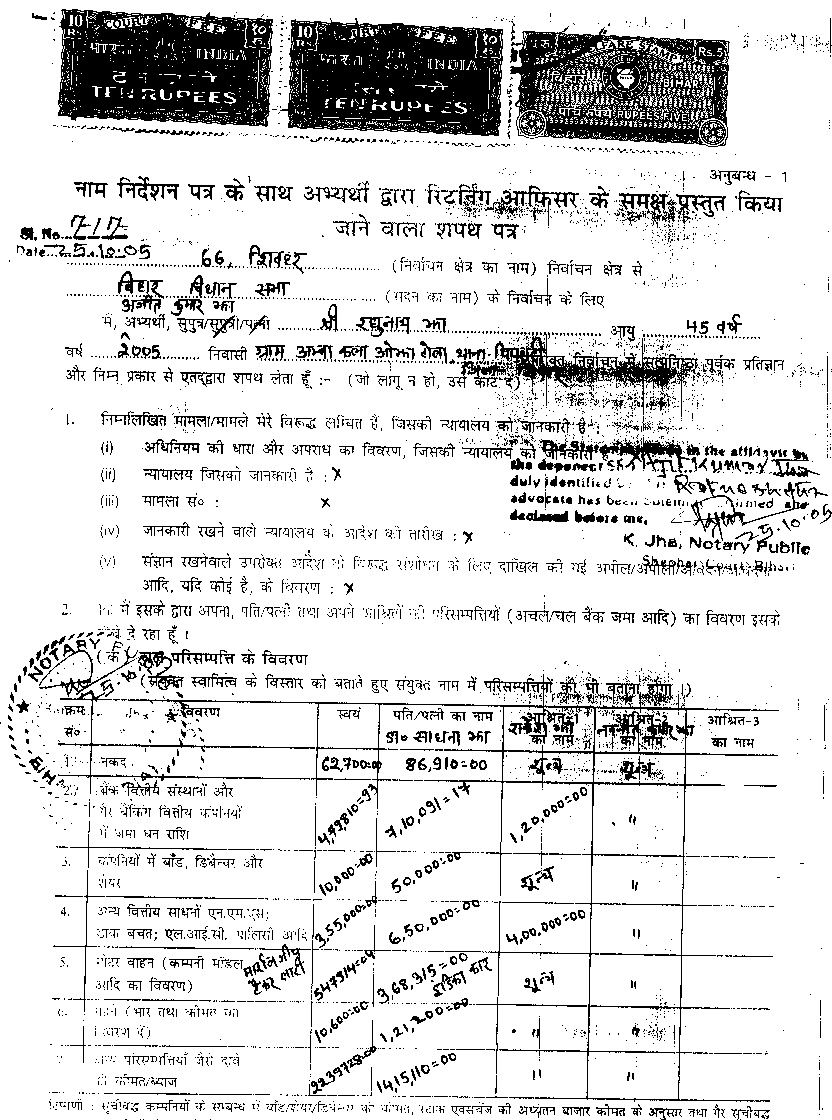 10 COURT FEE १०
RS रु
भारत INDIA
दस रुपये
TEN RUPEES
10 COURT FEE १०
RS रु
भारत INDIA
दस रुपये
TEN RUPEES
WELFARE STAMP Rs.5
बिहार BIHAR
पाँच रुपये RUPEES FIVE
अनुबन्ध - 1
नाम निर्देशन पत्र के साथ अभ्यर्थी द्वारा रिटर्निंग आफिसर के समक्ष प्रस्तुत किया
जाने वाला शपथ पत्र
Sl. No. 717
Date 25.10.05
66, शिवहर (निर्वाचन क्षेत्र का नाम) निर्वाचन क्षेत्र से
बिहार विधान सभा (सदन का नाम) के निर्वाचन के लिए
अजीत कुमार झा
मैं, अभ्यर्थी, सुपुत्र/सुपुत्री/पत्नी श्री रघुनाथ झा आयु 45 वर्ष
वर्ष 2005 निवासी ग्राम अम्बा कला ओझा टोला, थाना निर्वाचन में सत्यनिष्ठा पूर्वक प्रतिज्ञान
और निम्न प्रकार से एतद्द्वारा शपथ लेता हूँ :- (जो लागू न हो, उसे काट दें)
1. निम्नलिखित मामला/मामले मेरे विरूद्ध लम्बित हैं, जिसकी न्यायालय को जानकारी है :
(i) अधिनियम की धारा और अपराध का विवरण, जिसकी न्यायालय को जानकारी है
(ii) न्यायालय जिसको जानकारी है : x
(iii) मामला सं० : x
(iv) जानकारी रखने वाले न्यायालय के आदेश की तारीख : x
(v) संज्ञान रखनेवाले उपरोक्त आदेश के विरूद्ध संशोधन के लिए दाखिल की गई अपील/अपीलों
आदि, यदि कोई है, के विवरण : x
The in the affidavit by
the deponent Shri Ajit Kumar Jha
duly identified by
advocate has been affirmed and
declared before me.
25.10.05
K. Jha, Notary Public
Sheohar Court, Bihar
2. मैं इसके द्वारा अपना, पति/पत्नी तथा अपने आश्रितों की परिसम्पत्तियों (अचल/चल बैंक जमा आदि) का विवरण इसके
दे रहा हूँ ।
(क) चल परिसम्पत्ति के विवरण
(संयुक्त स्वामित्व के विस्तार को बताते हुए संयुक्त नाम में परिसम्पत्तियों को भी बताना होगा ।)
NOTARY
25.10.05
BIHAR
क्रम सं० विवरण स्वयं पति/पत्नी का नाम श्रीमती साधना झा आश्रित-1 का नाम आश्रित-2 का नाम आश्रित-3 का नाम
1. नकद 62,700=00 86,910=00 शून्य शून्य
2. बैंक वित्तीय संस्थानों और
गैर बैंकिंग वित्तीय कंपनियों
में जमा धन राशि 4,99,810=93 7,10,091=17 1,20,000=00 "
3. कंपनियों में बाँड, डिबैन्चर और
शेयर 10,000=00 50,000=00 शून्य "
4. अन्य वित्तीय साधनों एन.एस.एस;
डाक बचत; एल.आई.सी. पालिसी आदि 3,55,000=00 6,50,000=00 4,00,000=00 "
5. मोटर वाहन (कम्पनी मॉडल
आदि का विवरण) 547914=04 3,68,315=00 इंडिका कार शून्य "
6. गहने (भार तथा कीमत का
विवरण दें) 10,600=00 1,21,200=00 " "
7. अन्य परिसम्पत्तियाँ जैसे दावे
की कीमत/ब्याज 2239728=00 14,15,110=00 " "
टिप्पणी : सूचीबद्ध कम्पनियों के सम्बन्ध में बाँड/शेयर/डिबेन्चर की कीमत, स्टाक एक्सचेंज की अध्यतन बाजार कीमत के अनुसार तथा गैर सूचीबद्ध